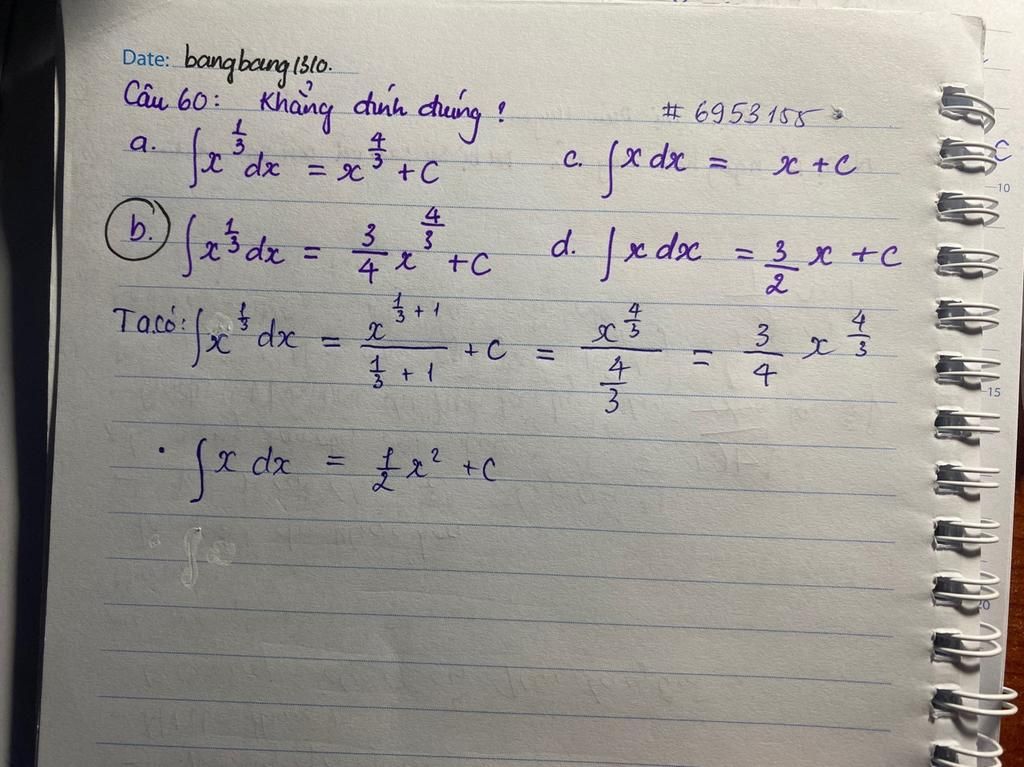 Date: bangbang1310.
Câu 60: Khẳng định đúng! # 6953155
a. ∫x^{1/3} dx = x^{4/3} + C c. ∫x dx = x + C
b. ∫x^{1/3} dx = 3/4 x^{4/3} + C d. ∫x dx = 3/2 x + C
Ta có: ∫x^{1/3} dx = x^{1/3 + 1} / (1/3 + 1) + C = x^{4/3} / (4/3) = 3/4 x^{4/3}
• ∫x dx = 1/2 x² + C
C
10
15
20